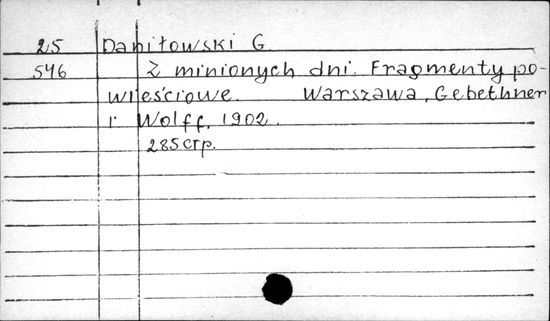 25 Daniłowski G.
546 Z minionych dni. Fragmenty po-
wieściowe. Warszawa, Gebethner
i Wolff, 1902.
285 стр.